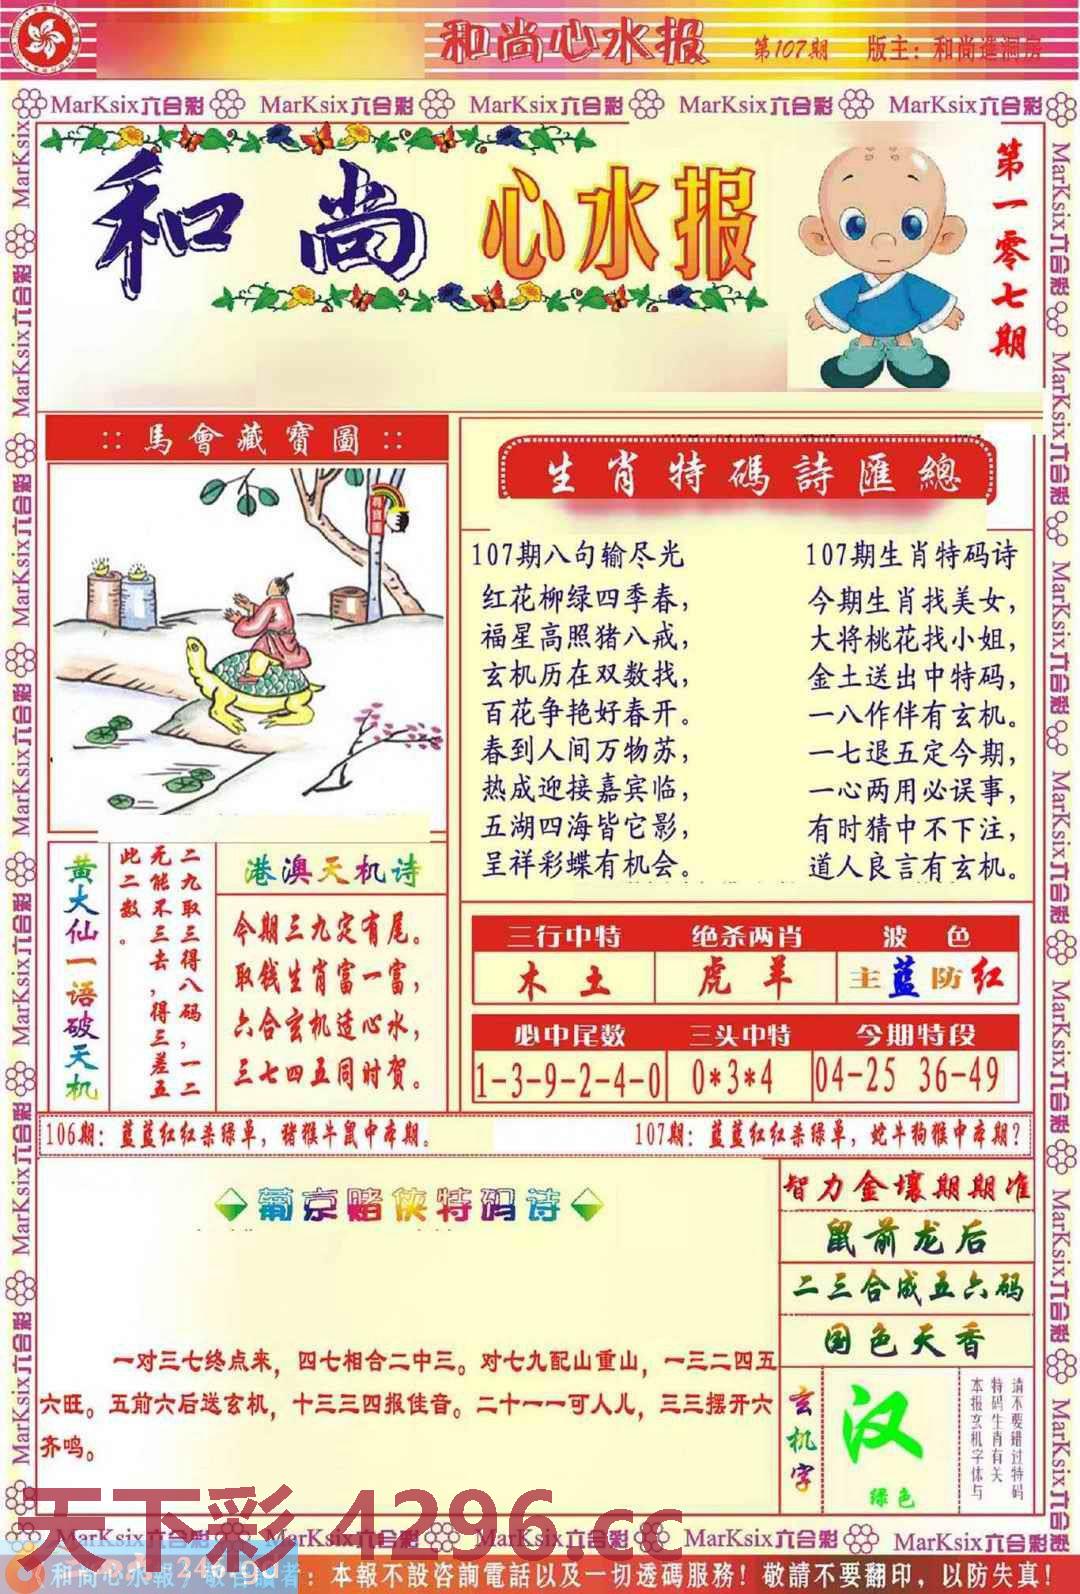 和尚心水报 第107期 版主：和尚進洞房
MarKsix六合彩 MarKsix六合彩 MarKsix六合彩 MarKsix六合彩 MarKsix六合彩
和尚心水报
第一零七期
::馬會藏寶圖::
尋寶圖
生肖特碼詩匯總
107期八句输尽光
红花柳绿四季春，
福星高照猪八戒，
玄机历在双数找，
百花争艳好春开。
春到人间万物苏，
热成迎接嘉宾临，
五湖四海皆它影，
呈祥彩蝶有机会。
107期生肖特码诗
今期生肖找美女，
大将桃花找小姐，
金土送出中特码，
一八作伴有玄机。
一七退五定今期，
一心两用必误事，
有时猜中不下注，
道人良言有玄机。
黄大仙一语破天机
二九取三得八码，一二
无能不三去，得三差五
此二数。
港澳天机诗
今期三九定有尾。
取钱生肖富一富，
六合玄机适心水，
三七四五同时贺。
三行中特 绝杀两肖 波色
木土 虎羊 主蓝防红
必中尾数 三头中特 今期特段
1-3-9-2-4-0 0*3*4 04-25 36-49
106期：蓝蓝红红杀绿单，猪猴牛鼠中本期。
107期：蓝蓝红红杀绿单，蛇牛狗猴中本期？
葡京赌侠特码诗
一对三七终点来，四七相合二中三。对七九配山重山，一三二四五
六旺。五前六后送玄机，十三三四报佳音。二十一一可人儿，三三摆开六
齐鸣。
智力金壤期期准
鼠前龙后
二三合成五六码
国色天香
玄机字
汉
绿色
请不要错过特码
特码生肖有关
本报玄机字体与
天下彩 4296.cc
MarKsix六合彩 MarKsix六合彩 MarKsix六合彩 MarKsix六合彩 MarKsix六合彩
：本報不設咨詢電話以及一切透碼服務！敬請不要翻印，以防失真！